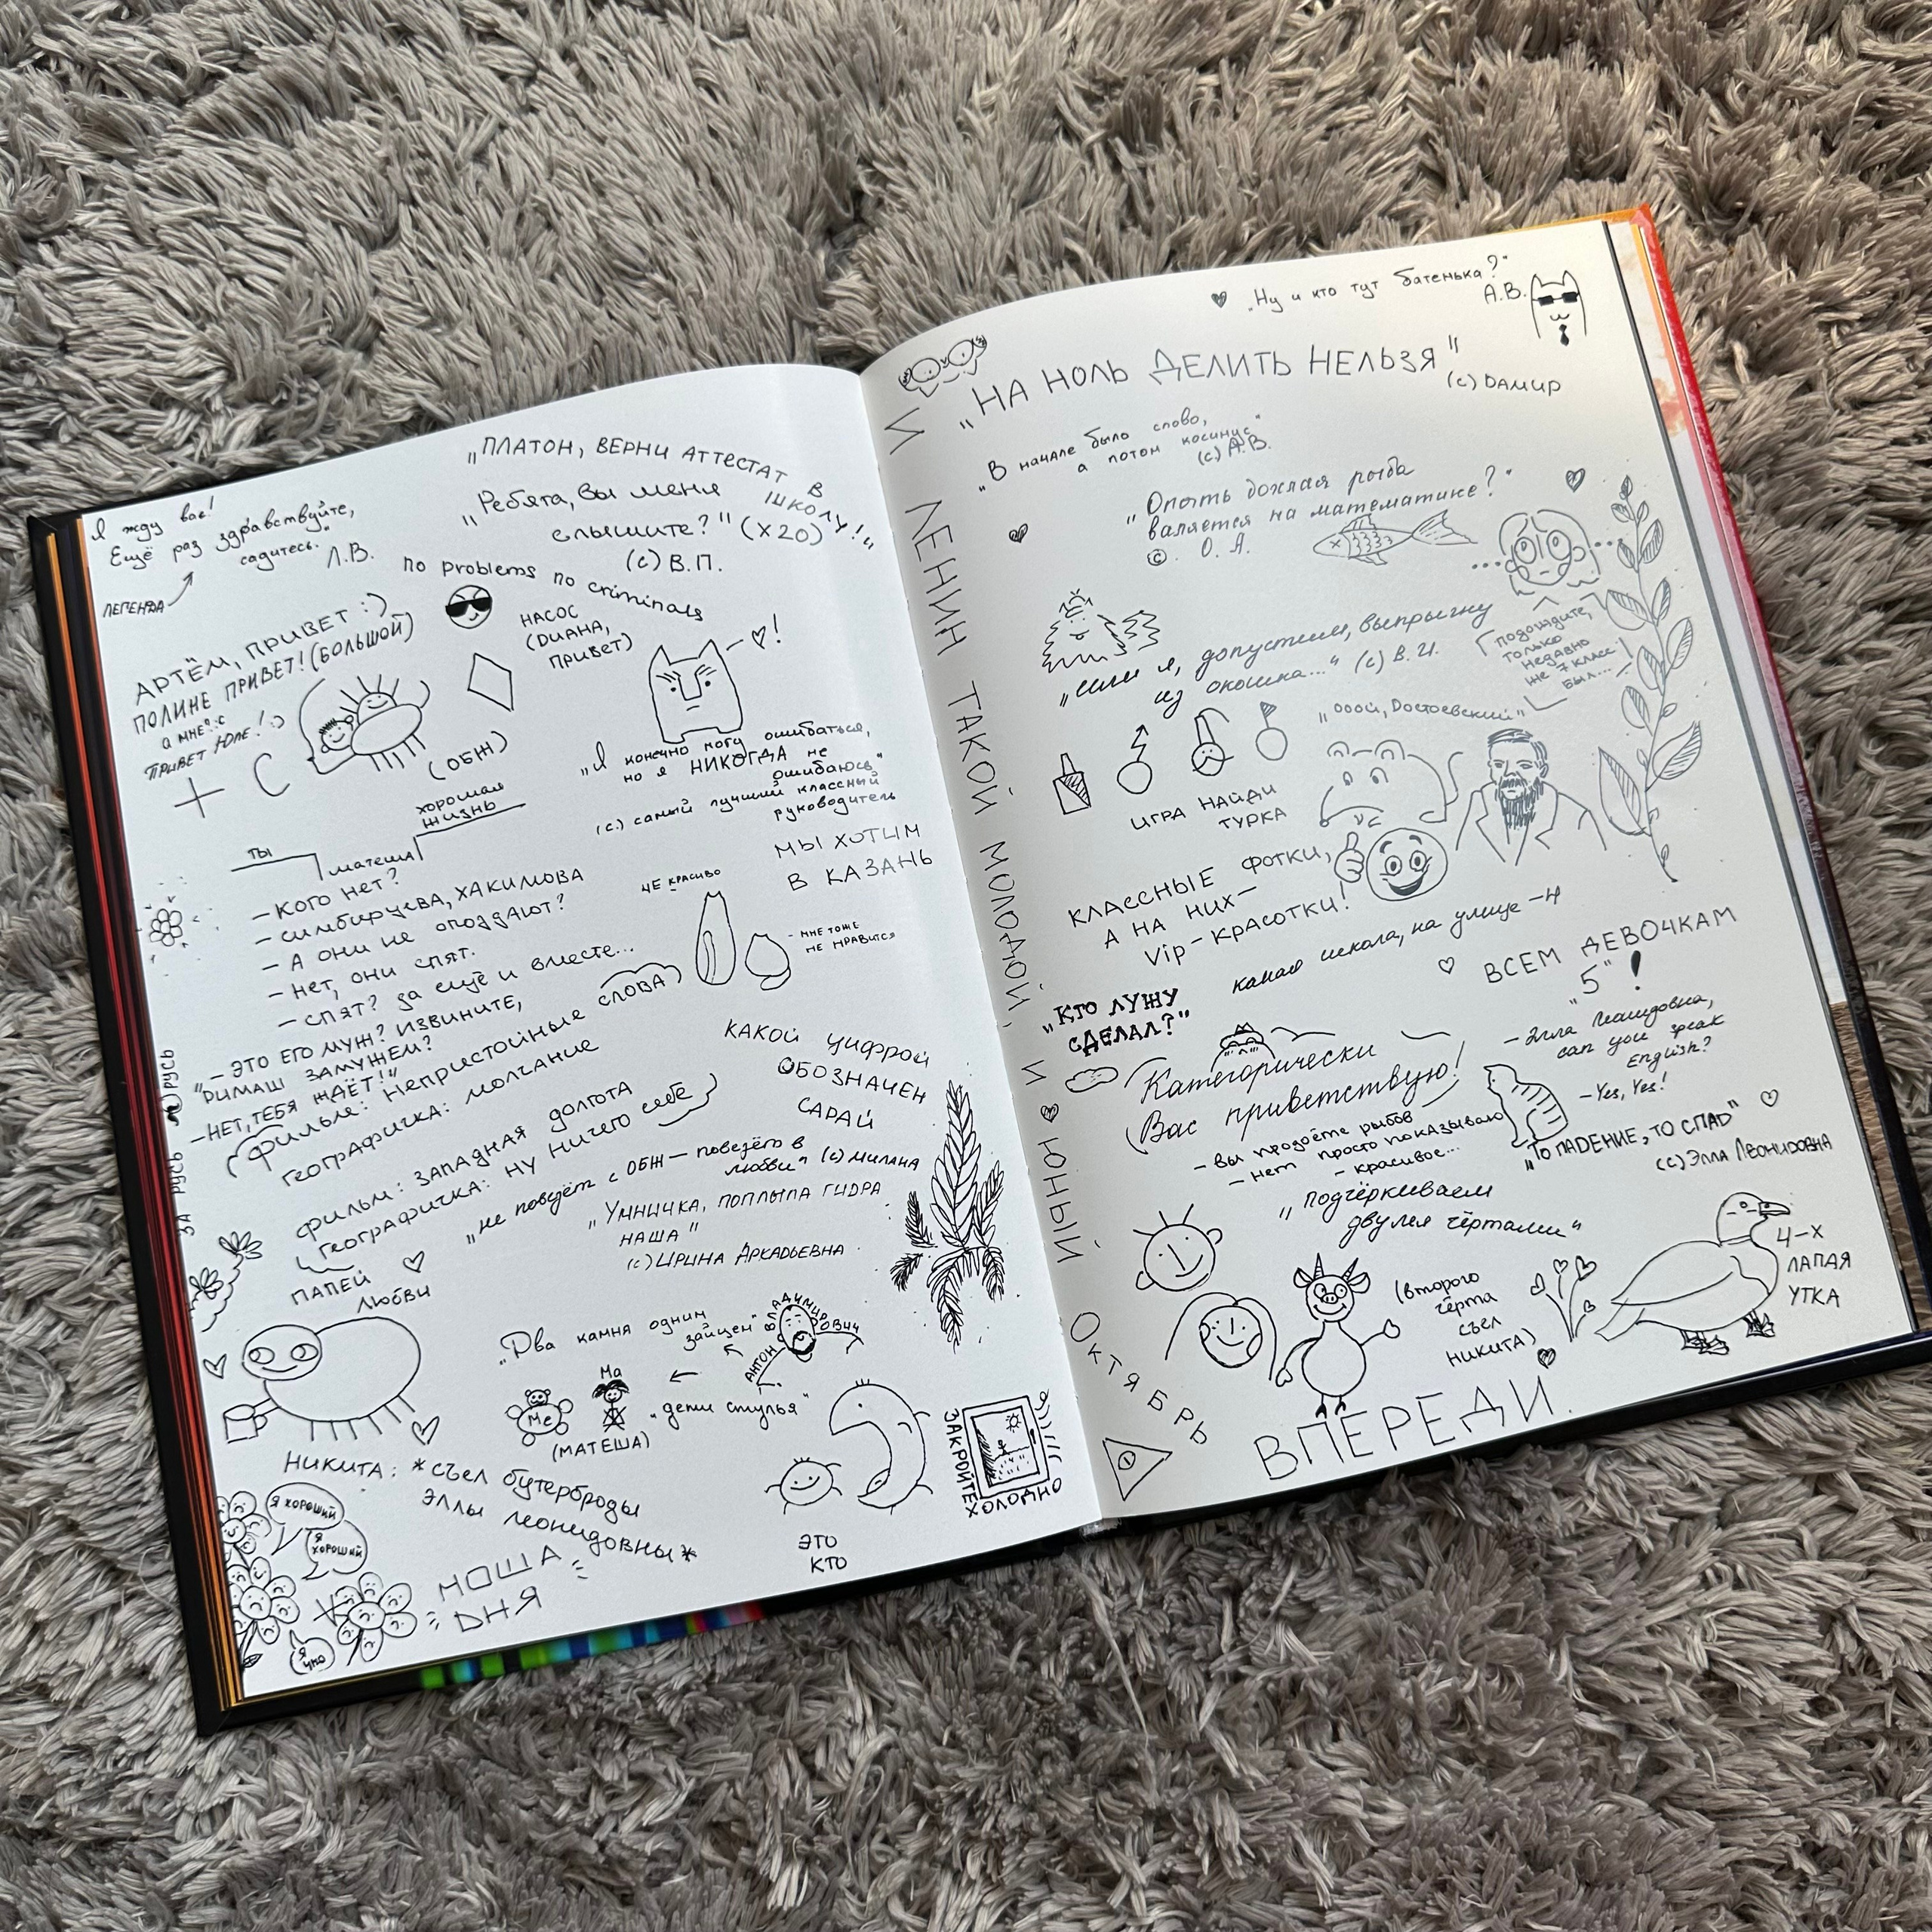 „ПЛАТОН, ВЕРНИ АТТЕСТАТ В ШКОЛУ!"
Я жду вас!
Ещё раз здравствуйте,
садитесь."
Л.В.
ЛЕГЕНДА
„Ребята, вы меня
слышите?" (х20)
(с) В.П.
no problems no criminals
АРТЁМ, ПРИВЕТ :)
ПОЛИНЕ ПРИВЕТ! (БОЛЬШОЙ)
а мне? :с
ПРИВЕТ ЮЛЕ! :)
+ С
НАСОС
(ДИАНА,
ПРИВЕТ)
(ОБЖ)
„Я конечно могу ошибаться,
но я НИКОГДА не
ошибаюсь"
(с) самый лучший классный
руководитель
хорошая
жизнь
ТЫ
матеша
МЫ ХОТИМ
В КАЗАНЬ
- КОГО НЕТ?
- СИМБИРЦЕВА, ХАКИМОВА
- А ОНИ НЕ ОПОЗДАЮТ?
- НЕТ, ОНИ СПЯТ.
- СПЯТ? ДА ЕЩЁ И ВМЕСТЕ...
НЕ КРАСИВО
- МНЕ ТОЖЕ
НЕ НРАВИТСЯ
"- ЭТО ЕГО МУЖ? ИЗВИНИТЕ,
ДИМАШ ЗАМУЖЕМ?
- НЕТ, ТЕБЯ ЖДЁТ!"
ФИЛЬМ: НЕПРИСТОЙНЫЕ СЛОВА
ГЕОГРАФИЧКА: МОЛЧАНИЕ
ФИЛЬМ: ЗАПАДНАЯ ДОЛГОТА
ГЕОГРАФИЧКА: НУ НИЧЕГО СЕБЕ
КАКОЙ ЦИФРОЙ
ОБОЗНАЧЕН
САРАЙ
ЗА РУСЬ РУСЬ
„не повезёт с ОБЖ - повезёт в
любви" (с) МИЛАНА
„УМНИЧКА, ПОПЛЫЛА ГИДРА
НАША"
(с) ИРИНА АРКАДЬЕВНА
ПАПЕЙ
ЛЮБВИ
„Два камня одним
зайцем"
АНТОН ВЛАДИМИРОВИЧ
Ме
Ма
„дети стулья"
(МАТЕША)
НИКИТА: *съел бутерброды
ЭЛЛЫ ЛЕОНИДОВНЫ*
Я ХОРОШИЙ
Я ХОРОШИЙ
НОША
ДНЯ
ЭТО
КТО
ЗАКРОЙТЕ
ХОЛОДНО
И ЛЕНИН ТАКОЙ МОЛОДОЙ, И ЮНЫЙ ОКТЯБРЬ
ВПЕРЕДИ.
„Ну и кто тут батенька?"
А.В.
„НА НОЛЬ ДЕЛИТЬ НЕЛЬЗЯ"
(с) ДАМИР
„В начале было слово,
а потом косинус"
(с) А.В.
„Опять дохлая рыба
валяется на математике?"
© О. А.
„если я, допустим, выпрыгну
из окошка..." (с) В. И.
подождите,
только
недавно
же 7 класс
был...
„ооой, Достоевский"
ИГРА НАЙДИ
ТУРКА
КЛАССНЫЕ ФОТКИ,
А НА НИХ-
Vip-КРАСОТКИ!
какая школа, на улице -4
ВСЕМ ДЕВОЧКАМ
"5"!
„КТО ЛУЖУ
СДЕЛАЛ?"
Категорически
Вас приветствую!
- Элла Леонидовна,
can you speak
English?
- Yes, Yes!
- вы продоёте рыбов
- нет просто показываю
- красивое...
„ТО ПАДЕНИЕ, ТО СПАД"
(с) ЭЛЛА ЛЕОНИДОВНА
„подчёркиваем
двумя чертами"
(второго
чёрта
съел
НИКИТА)
4-Х
ЛАПАЯ
УТКА